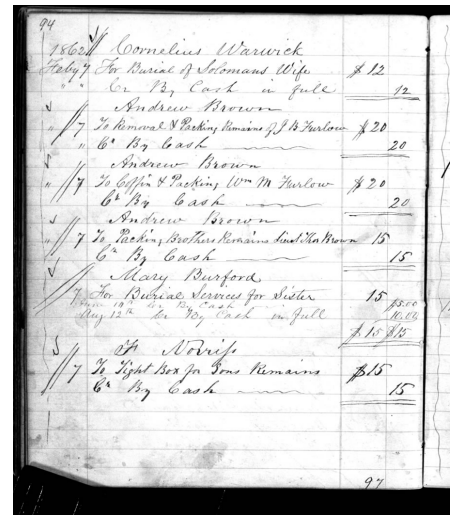 94
1862 Cornelius Warwick
Feby 7 For Burial of Solomans Wife $12
" " Cr By Cash in full 12
Andrew Brown
" 7 To Removal & Packing Remains of J B Furlow $20
" Cr By Cash 20
Andrew Brown
" 7 To Coffin & Packing Wm M Furlow $20
Cr By Cash 20
Andrew Brown
" 7 To Packing Brothers Remains Brown 15
Cr By Cash 15
Mary Burford
7 For Burial Services for Sister 15
By Cash $5.00
Aug 12th Cr By Cash in full 10.00
$15 $15
Norriss
7 To Tight Box for Sons Remains $15
Cr By Cash 15
97